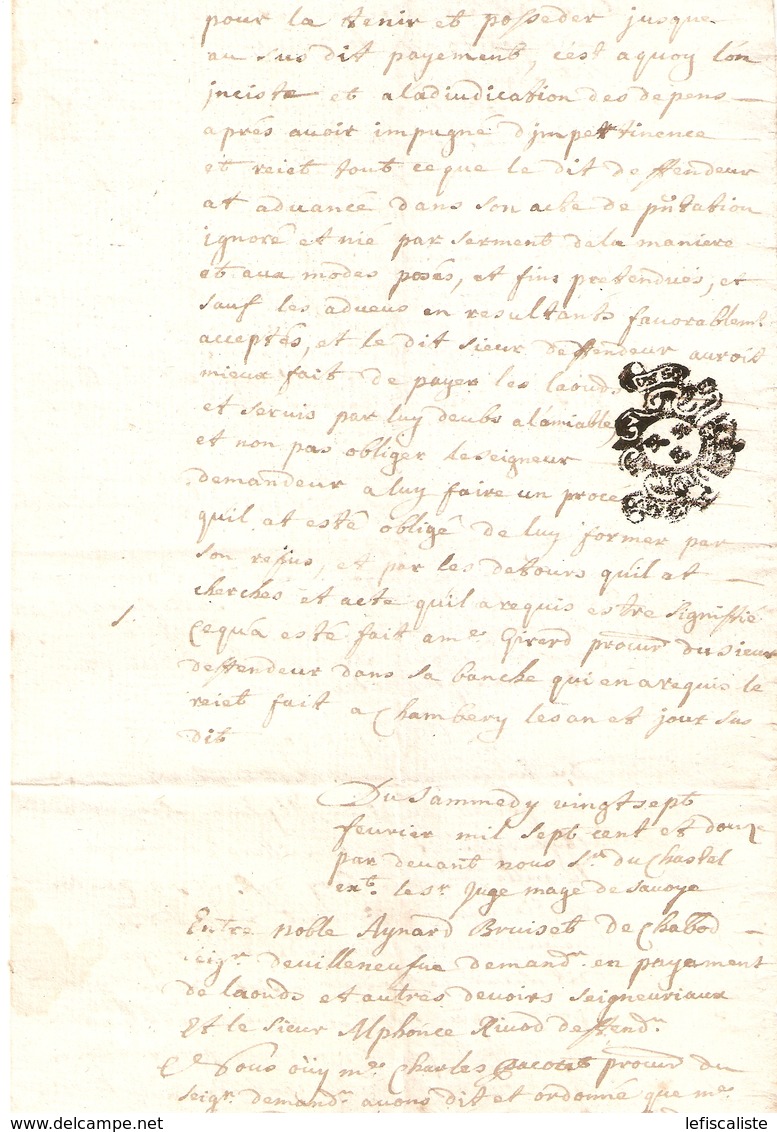 pour la tenir et posseder jusque
au sus dit payement, c'est a quoy l'on
jnciste et a ladiudication des depens
aprés avoir impugné d'jmpertinence
et reiet tout ce que le dit deffendeur
at aduancé dans son acte de
ignoré et nié par serment de la maniere
et aux modes posés, et fins pretendues, et
sauf les adueus en resultants fauorablemt
acceptés, et le dit sieur deffendeur auroit
mieux fait de payer les laouds
et servis par luy deubs a lámiable,
et non pas obliger le seigneur
demandeur a luy faire un proce
quil at esté obligé de luy former par
son refus, et par les detours quil at
cherchés et acte quil a requis estre signiffié
Ce qu'a esté fait a me Girard procur du sieur
deffendeur dans sa banche qui en a requis le
reiet fait a Chambery les an et jour sus
dit
Du Sammedy vingt sept
feurier mil sept cent et douze
par deuant nous Sr du Chastel
ext. le sr Juge mage de sauoye
Entre noble Aynard Bruiset de Chabod
seigr deuilleneufue demandr en payement
de laouds et autres deuoirs seigneuriaux
Et le sieur Alphonce Riuod deffendr
Nous oüy me Charles procur du
seigr demandr auons dit et ordonné que me
lefiscaliste